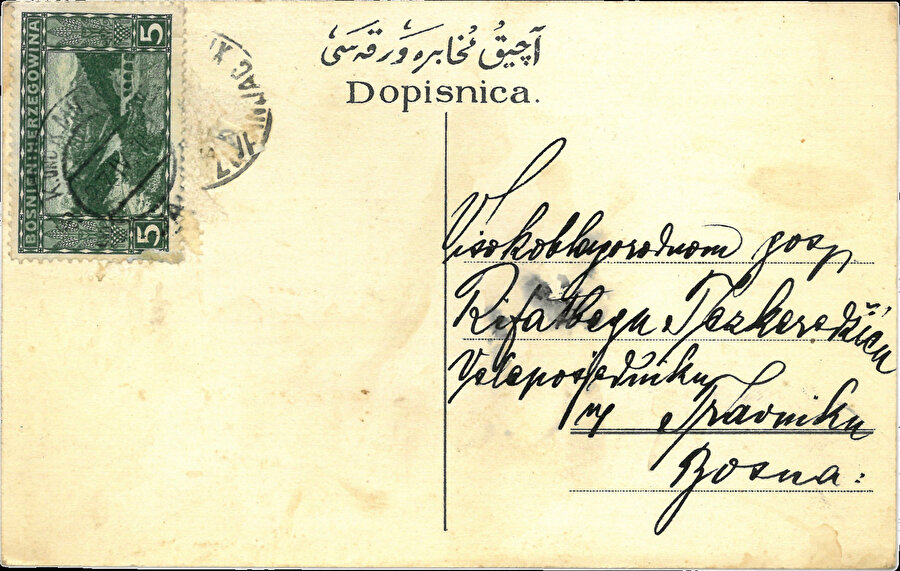 BOSNIEN-HERZEGOWINA
5
5
آچیق مخابره ورقه‌سی
Dopisnica.
Visokoblagorodnom gosp.
Rifatbegu Tezkeredžiću
Veleposjedniku
u Travniku
Bosna: